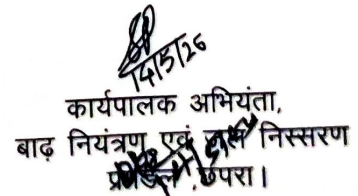 14/5/26
कार्यपालक अभियंता,
बाढ़ नियंत्रण एवं जल निस्सरण
प्रमंडल, छपरा।